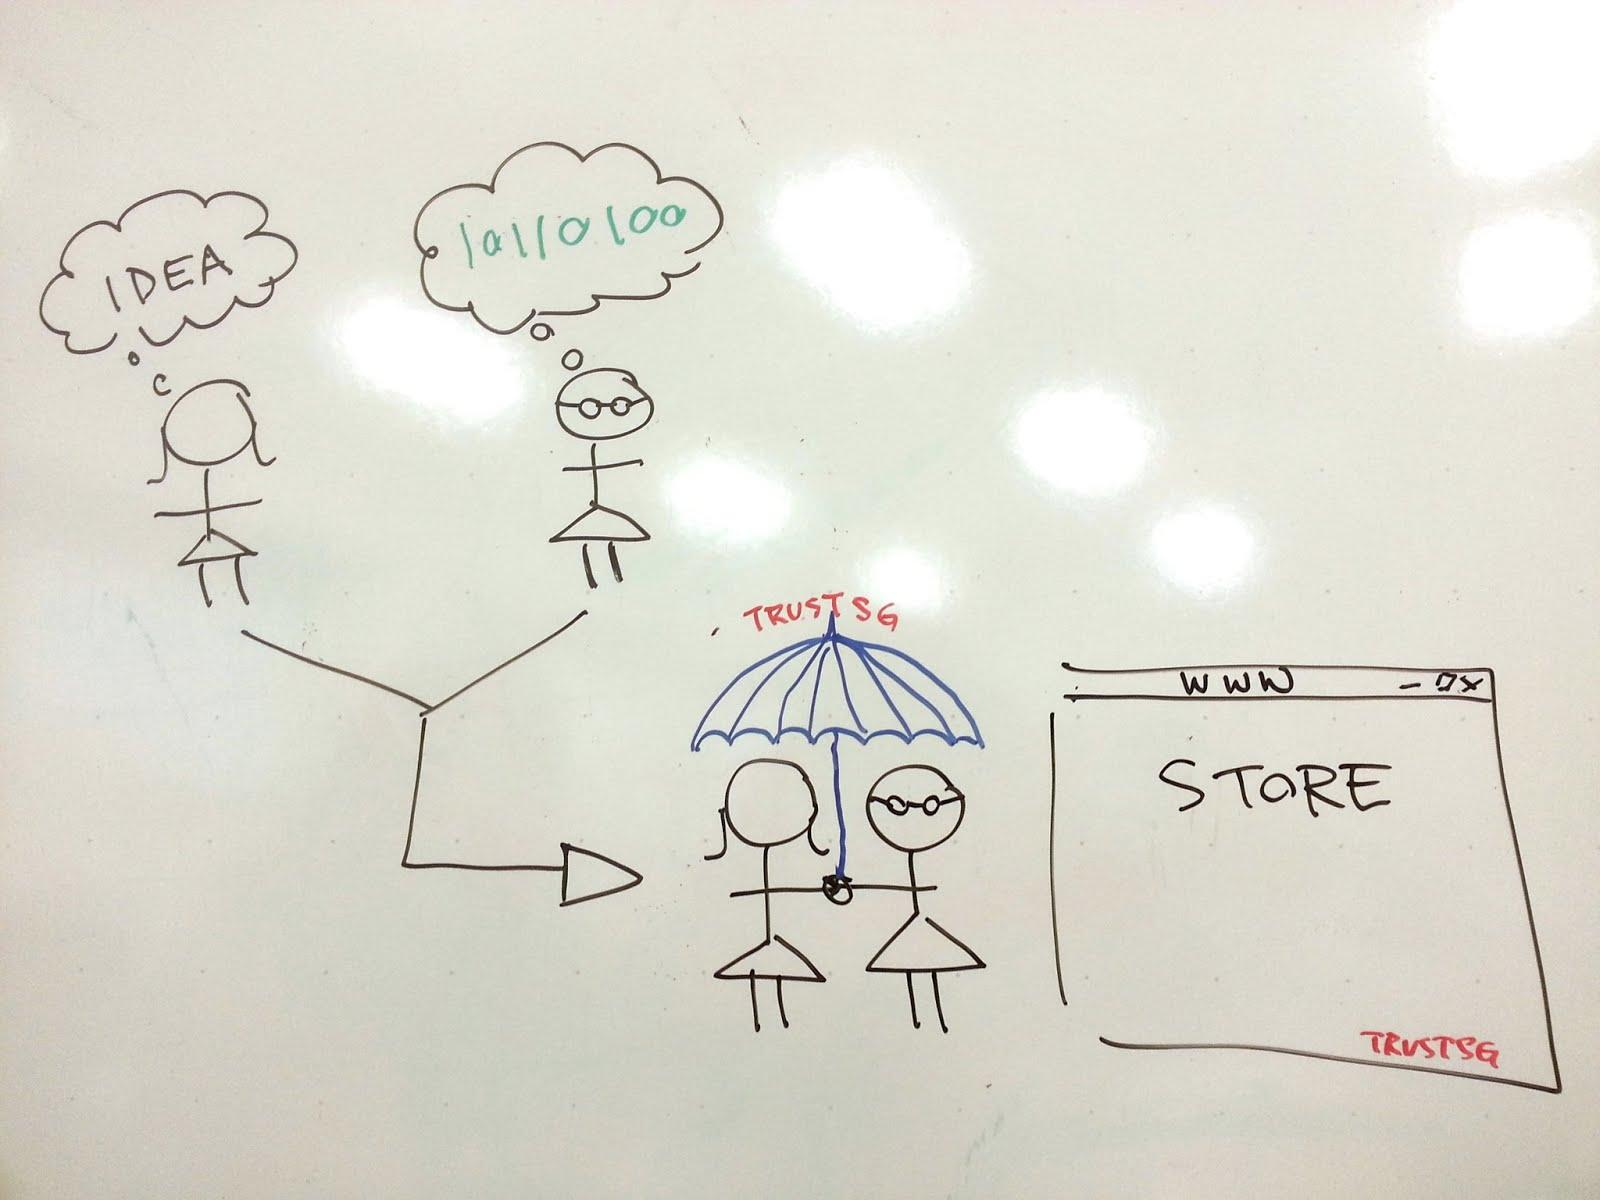 IDEA
10110100
TRUSTSG
WWW
STORE
TRUSTSG